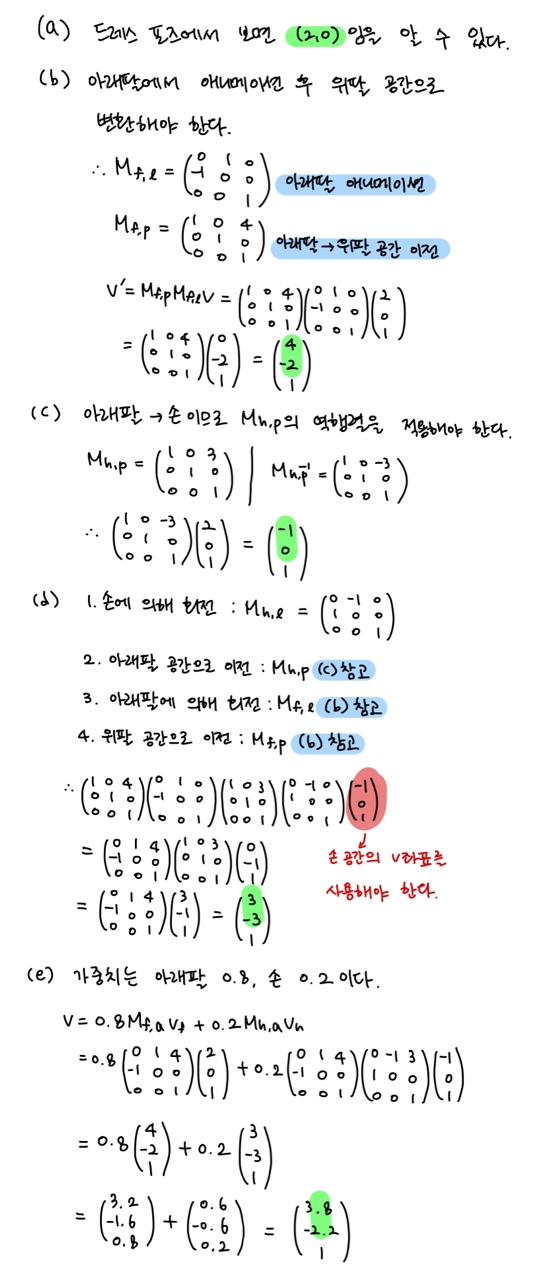 (a) 드레스 포즈에서 보면 (2,0) 임을 알 수 있다.
(b) 아래팔에서 애니메이션 후 위팔 공간으로
변환해야 한다.
∴ M_{f,l} = (0 1 0; -1 0 0; 0 0 1) 아래팔 애니메이션
M_{f,p} = (1 0 4; 0 1 0; 0 0 1) 아래팔→위팔 공간 이전
V' = M_{f,p} M_{f,l} V = (1 0 4; 0 1 0; 0 0 1)(0 1 0; -1 0 0; 0 0 1)(2; 0; 1)
= (1 0 4; 0 1 0; 0 0 1)(0; -2; 1) = (4; -2; 1)
(c) 아래팔 → 손 이므로 M_{h,p}의 역행렬을 적용해야 한다.
M_{h,p} = (1 0 3; 0 1 0; 0 0 1) | M_{h,p}^{-1} = (1 0 -3; 0 1 0; 0 0 1)
∴ (1 0 -3; 0 1 0; 0 0 1)(2; 0; 1) = (-1; 0; 1)
(d) 1. 손에 의해 회전 : M_{h,l} = (0 -1 0; 1 0 0; 0 0 1)
2. 아래팔 공간으로 이전 : M_{h,p} (c) 참고
3. 아래팔에 의해 회전 : M_{f,l} (b) 참고
4. 위팔 공간으로 이전 : M_{f,p} (b) 참고
∴ (1 0 4; 0 1 0; 0 0 1)(0 1 0; -1 0 0; 0 0 1)(1 0 3; 0 1 0; 0 0 1)(0 -1 0; 1 0 0; 0 0 1)(-1; 0; 1)
= (0 1 4; -1 0 0; 0 0 1)(1 0 3; 0 1 0; 0 0 1)(0; -1; 1)
손 공간의 V좌표를
사용해야 한다.
= (0 1 4; -1 0 0; 0 0 1)(3; -1; 1) = (3; -3; 1)
(e) 가중치는 아래팔 0.8, 손 0.2 이다.
V = 0.8 M_{f,a} V_f + 0.2 M_{h,a} V_h
= 0.8 (0 1 4; -1 0 0; 0 0 1)(2; 0; 1) + 0.2 (0 1 4; -1 0 0; 0 0 1)(0 -1 3; 1 0 0; 0 0 1)(-1; 0; 1)
= 0.8 (4; -2; 1) + 0.2 (3; -3; 1)
= (3.2; -1.6; 0.8) + (0.6; -0.6; 0.2) = (3.8; -2.2; 1)